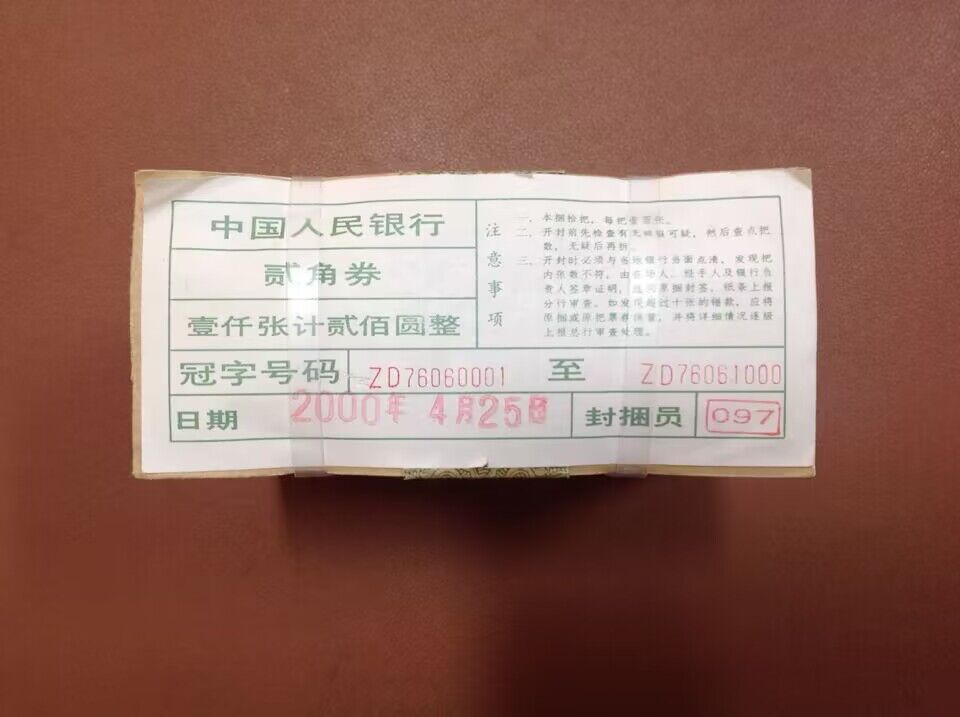 中国人民银行
贰角券
壹仟张计贰佰圆整
注意事项
一、本捆检把，每把壹百张。
二、开封前先检查有无破损可疑，然后查点把
数，无疑后再拆。
三、开封时必须与各地银行当面点清，发现把
内张数不符，由在场人、经手人及银行负
责人签章证明，连同原捆封签、纸条上报
分行审查。如发现超过十张的错款，应将
原捆或原把票券保留，并将详细情况逐级
上报总行审查处理。
冠字号码 ZD76060001 至 ZD76061000
日期 2000年 4月25日 封捆员 097